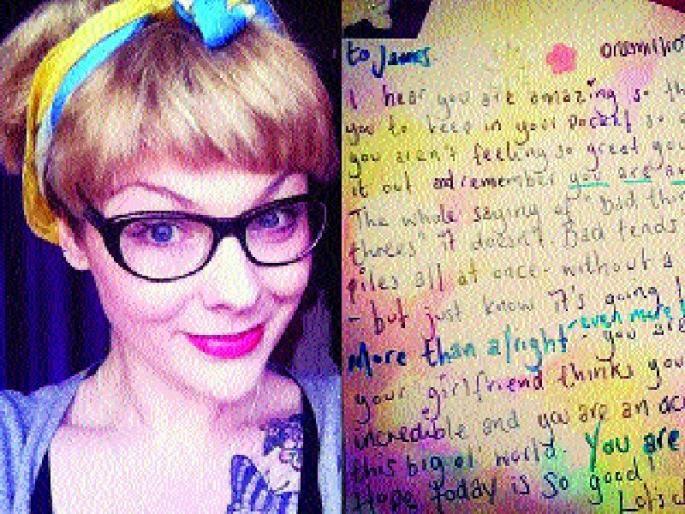 to James.
I hear you are amazing so
you to keep in your pocket so
you aren't feeling so great you
it out and remember you are
The whole saying of "Bad
threes" it doesn't. Bad tends
piles all at once - without a
- but just know it's going
More than alright - even more
- you are
your girlfriend thinks you
incredible and you are an
this big ol' world. You are
Hope today is so good!
Lots